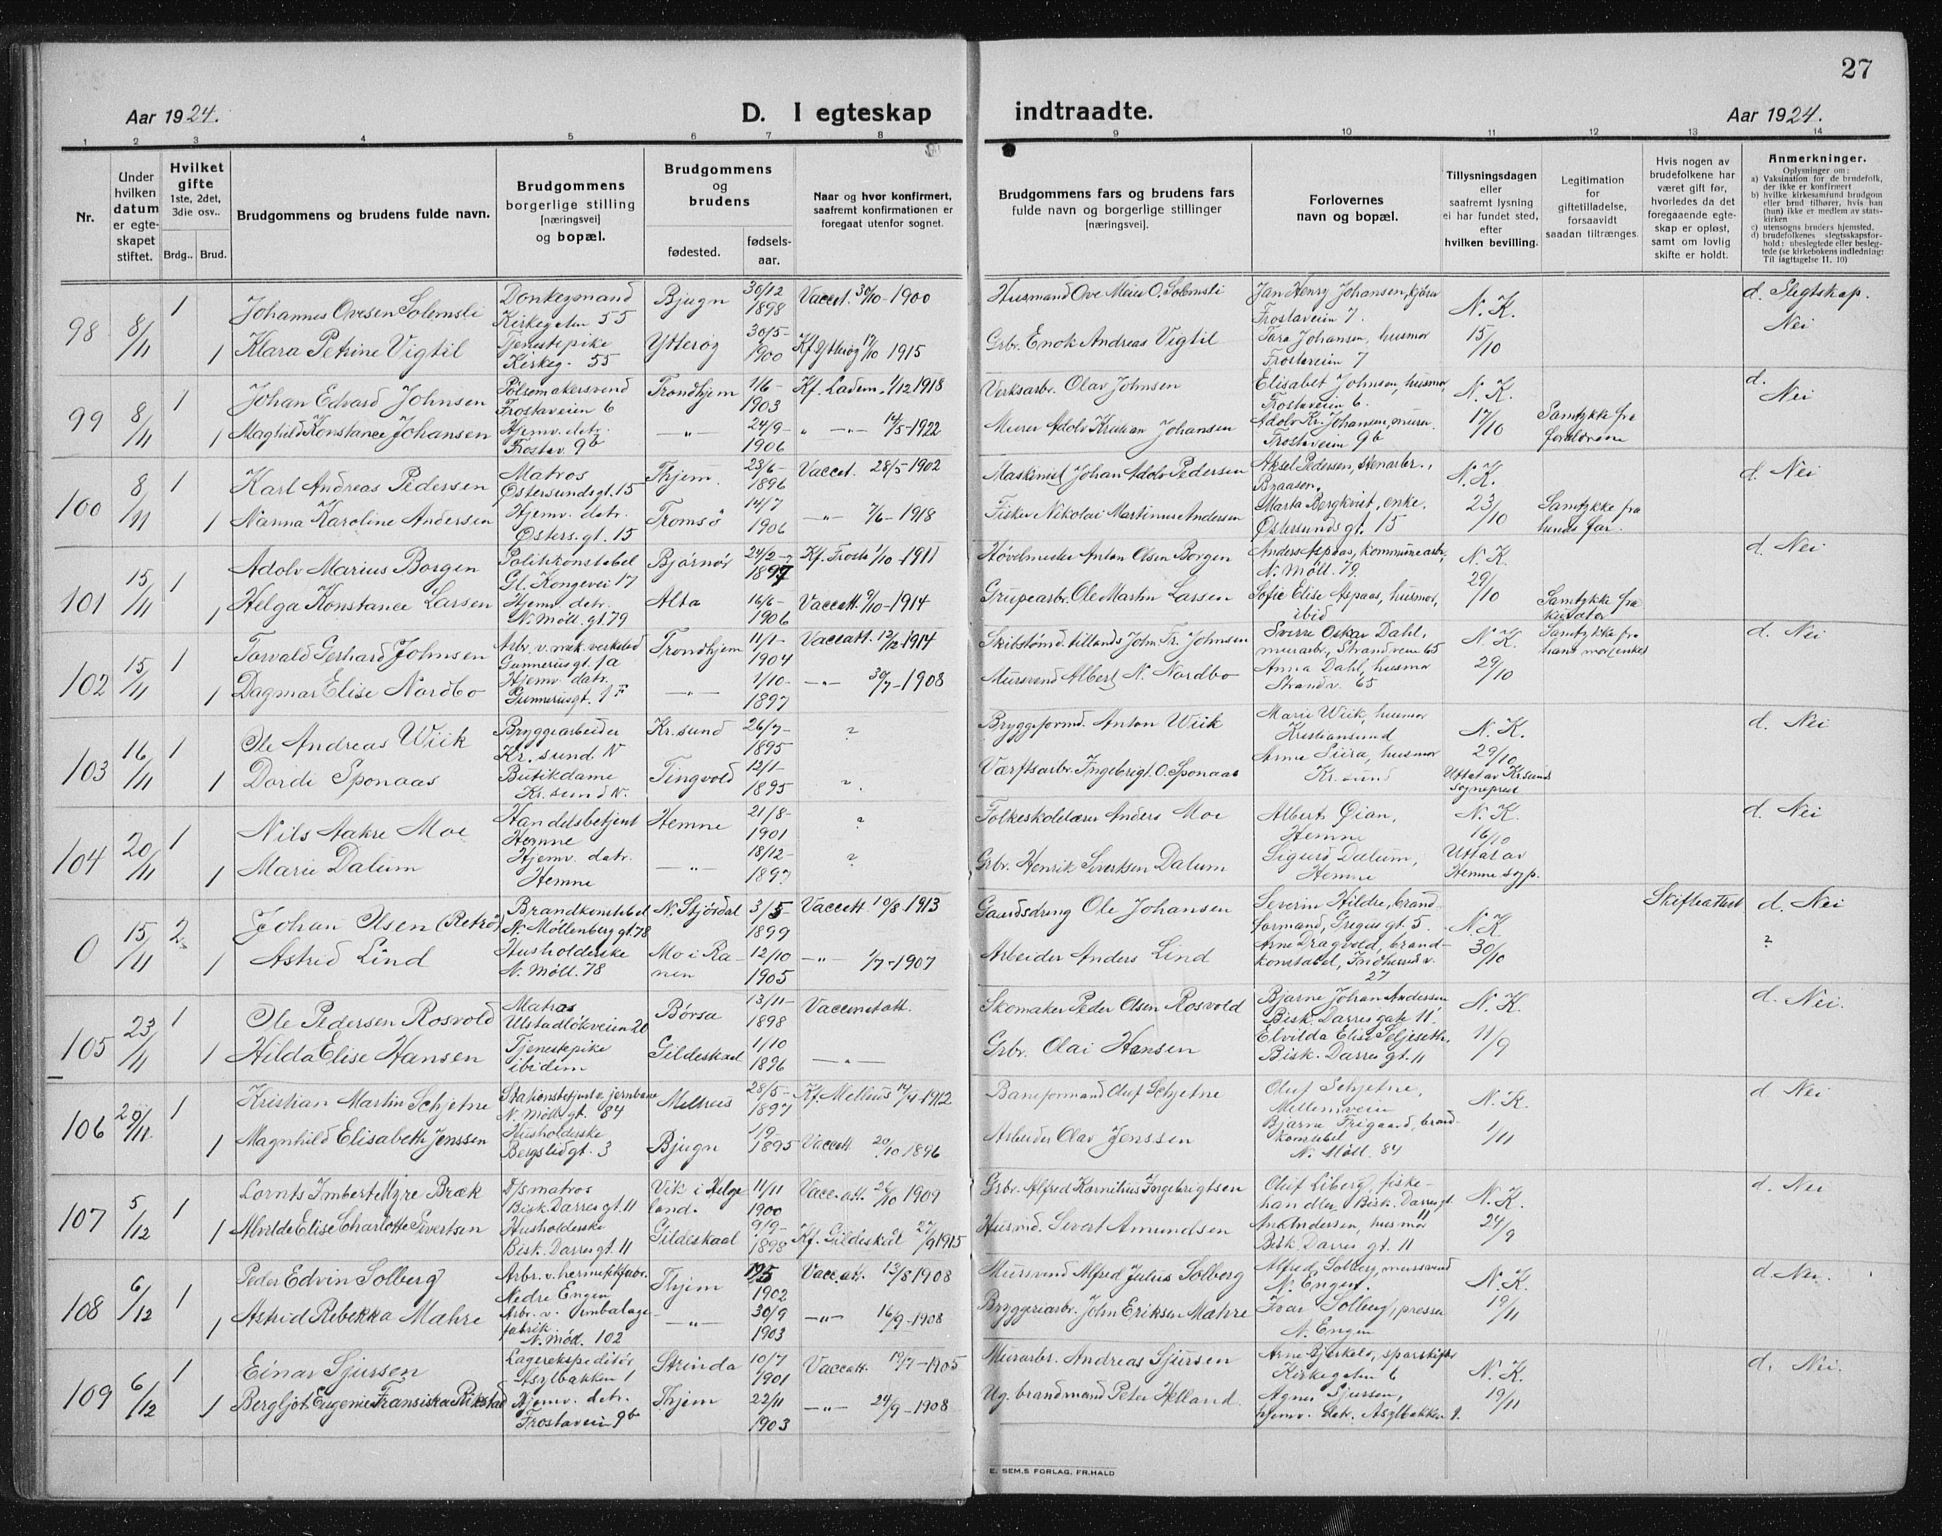 27
Aar 1924.
D. I egteskap
indtraadte.
Aar 1924.
1 2 3 4 5 6 7 8 9 10 11 12 13 14
Nr.
Under hvilken datum er egteskapet stiftet.
Hvilket gifte 1ste, 2det, 3die osv..
Brdg.. Brud.
Brudgommens og brudens fulde navn.
Brudgommens borgerlige stilling [næringsvei] og bopæl.
Brudgommens og brudens
fødested.
fødselsaar.
Naar og hvor konfirmert, saafremt konfirmationen er foregaat utenfor sognet.
Brudgommens fars og brudens fars fulde navn og borgerlige stillinger [næringsvei].
Forlovernes navn og bopæl.
Tillysningsdagen eller saafremt lysning ei har fundet sted, efter hvilken bevilling.
Legitimation for giftetilladelse, forsaavidt saadan tiltrænges.
Hvis nogen av brudefolkene har været gift før, hvorledes da det foregaaende egteskap er opløst, samt om lovlig skifte er holdt.
Anmerkninger.
Oplysninger om:
a) Vaksination for de brudefolk, der ikke er konfirmert
b) hvilke kirkesamfund brudgom eller brud tilhører, hvis han (hun) ikke er medlem av statskirken
c) utensogns bruders hjemsted.
d) brudefolkenes slegtsskapsforhold: ubeslegtede eller beslegtede (se kirkebokens indledning: Til iagttagelse II. 10)
98 8/11 1 Johannes Ovesen Solemsli Donkeymand Kirkegaten 55 Bjugn 30/12 1898 Vaccat. 30/10-1900 Husmand Ove Meier O. Solemsli Jan Henry Johansen, Frostaveien 7. N.K. 15/10 d. Slegtskap. Nei
1 Klara Petrine Vigtil Tjenestepike Kirkeg. 55 Ytterøy 30/5- 1900 Kf. Ytterøy 1915 Grbr. Enok Andreas Vigtil Tora Johansen, husmor Frostaveien 7
99 8/11 1 Johan Edvard Johnsen Pølsemakersvend Frostaveien 6 Trondhjem 1/6- 1903 Kf. Ladem. 1/12 1918 Verksarbr. Olav Johnsen Elisabet Johnsen, husmor, Frostaveien 6. N.K. 17/10 d. Nei
1 Maghild Konstance Johansen Hjemv. datr. Frostav. 9b —"— 24/9- 1906 " —"— 14/5-1922 Murer Adolv Kristian Johansen Adolv Kr. Johansen, murer Frostaveien 9b Samtykke fra foreldrene
100 8/11 1 Karl Andreas Pedersen Matros Østersundsgt. 15 Thjem. 23/6- 1896 Vaccat. 28/5-1902 Maskinist Johan Adolv Pedersen Aksel Pedersen, stenarbr., Braasen. N.K. 23/10 d. Nei
1 Nanna Karoline Andersen Hjemv. datr. Østers.gt. 15 Tromsø 14/7 1906 —"— 7/6-1918 Fisker Nikolai Martinius Andersen Marta Bergkvist, enke, Østersundsgt. 15 Samtykke fra hendes far.
101 15/11 1 Adolv Marius Borgen Politikonstabel Gl. Kongevei 17 Bjørnør 24/2- 1897 Kf. Frosta 1/10-1911 Høvelmester Anton Olsen Borgen Anders Aspaas, kommunearb., N. Møll. 79. N.K. 29/10 d. Nei
1 Helga Konstance Larsen Hjemv. datr. N. Møll.gt. 79 Alta 16/6- 1906 Vaccatt. 9/10-1914 Grupearbr. Ole Martin Larsen Sofie Elise Aspaas, husmor, ibid Samtykke fra kurator
102 15/11 1 Torvald Gerhard Johnsen Arbr. v. mek. verksted Gunnerusgt. 1a Trondhjem 11/1- 1904 Vaccatt. 13/12-1914 Skibstømd. tillands John Fr. Johnsen Sverre Oskar Dahl, murarbr., Strandveien 65 N.K. 29/10 Samtykke fra hans mor (enke) d. Nei
1 Dagmar Elise Nordbo Hjemv. datr. Gunnerusgt. 1F —"— 1/10- 1897 —"— 30/7-1908 Mursvend Albert N. Nordbo Anna Dahl, husmor Strandv. 65
103 16/11 1 Ole Andreas Wiik Bryggearbeider Kr.sund N Kr.sund 26/7- 1895 ? Bryggeformd. Anton Wiik Marie Wiik, husmor Kristiansund N.K. 29/10 d. Nei
1 Dordi Sponaas Butikdame Kr.sund N. Tingvold 12/1- 1895 ?. Værftsarbr. Ingebrigt O. Sponaas Anne husmor Kr.sund Uttat av Kr.sund sogneprest
104 20/11 1 Nils Aakre Moe Handelsbetjent Hemne Hemne 21/8- 1901 ? Folkeskolelærer Anders Moe Albert Øian, Hemne N.K. 16/10 d. Nei
1 Marie Dalum Hjemv. datr. Hemne —"— 18/12- 1897 ? Grbr. Henrik Sivertsen Dalum Sigurd Dalum, Hemne Uttat av Hemne sogp.
0 15/11 2 Johan Olsen (Retrø) Brandkonstabel N. Møllenberggt. 78 N. Stjørdal 3/5- 1899 Vaccatt 10/8-1913 Gaardsdreng Ole Johansen Severin Hildre, brandformand, Gregusgt. 5. N.K. 30/10 Skifteattest d. Nei
1 Astrid Lind Husholderske N. Møll. 78 Mo i Ranen 12/10 1905 —"— 1/7-1907 Arbeider Anders Lind Arne Dragvold, brandkonstabel, Indherredsv. 27 ?
105 23/11 1 Ole Pedersen Rosvold Matros Ulstadløkveien 20 Børsa 13/11- 1898 Vaccinat.att. Skomaker Peder Olsen Rosvold Bjarne Johan Andersen Bisk. Darresgate 11. N.K. 11/9 d. Nei
1 Hilda Elise Hansen Tjenestepike ibidem Gildeskaal 1/10 1896 —"— Grbr. Olai Hansen Elvilda Elise Seljeseth, Bisk. Darresgt. 11
106 20/11. 1 Kristian Martin Schjetne Stationsbetjent v. jernbane N. Møll.gt. 84 Melhus 28/5- 1897 Kf. Melhus 14/4-1912 Baneformand Oluf Schjetne Oluf Schjetne, N.K. 1/11 d. Nei
1 Magnhild Elisabeth Jenssen Husholderske Bergslidgt. 3 Bjugn 1/9- 1895 Vaccatt 20/10 1896 Arbeider Olav Jenssen Bjarne Frigaard, brandkonstabel N. Møll. 84
107 5/12 1 Lornts Imbert Myre Bræk D/smatros Bisk. Darresgt. 11 Vik i Helgeland. 11/11 1900 Vacc.att. 26/10 1909 Grbr. Alfred Kornilius Ingebrigtsen Oluf Liberg, fiskehandler, Bisk. Darresgt. 11 N.K. 24/9 d. Nei
1 Alvilde Elise Charlotte Sivertsen Husholderske Bisk. Darresgt. 11 Gildeskaal 9/9- 1898 Kf. Gildeskaal 27/9 1915 Husvid. Sivert Amundsen Andersen, husmor Bisk. Darresgt. 11
108 6/12 1 Peder Edvin Solberg Arbr. v. hermetikfabr. Nedre Engen Thjem 19/5 1902 Vacc.att. 13/8 1908 Mursvend Alfred Julius Solberg Alfred Solberg, mursvend N. Engen. N.K. 19/11 d. Nei.
1 Astrid Rebekka Mæhre Arbr. v. Embalagefabrik N. Mød. 102 —"— 30/9 1903 —"— 16/9-1908 Bryggeriarbr. John Eriksen Mæhre Ivar Solberg, presser N. Engen
109 6/12 1 Einar Sjursen Lagerekspeditør Asylbakken 1 Strinda 10/7 1901 Vaccatt. 19/7-1905 Murarbr. Andreas Sjursen Arne Bjerkelo, Kirkegaten 6 N.K. 19/11 d. Nei.
1 Bergljot Eugenie Fransiska Rikstad Hjemv. datr. Frostaveien 9b Thjem 22/11 1903 —"— 24/9-1908 Ug. brandmand Peter Helland. Agnes Sjursen, hjemv. datr. Asylbakken 1.
E. SEM,S FORLAG, FR.HALD